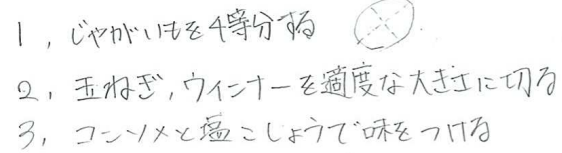 1, じゃがいもを4等分する
2, 玉ねぎ, ウィンナーを適度な大きさに切る
3, コンソメと塩こしょうで味をつける